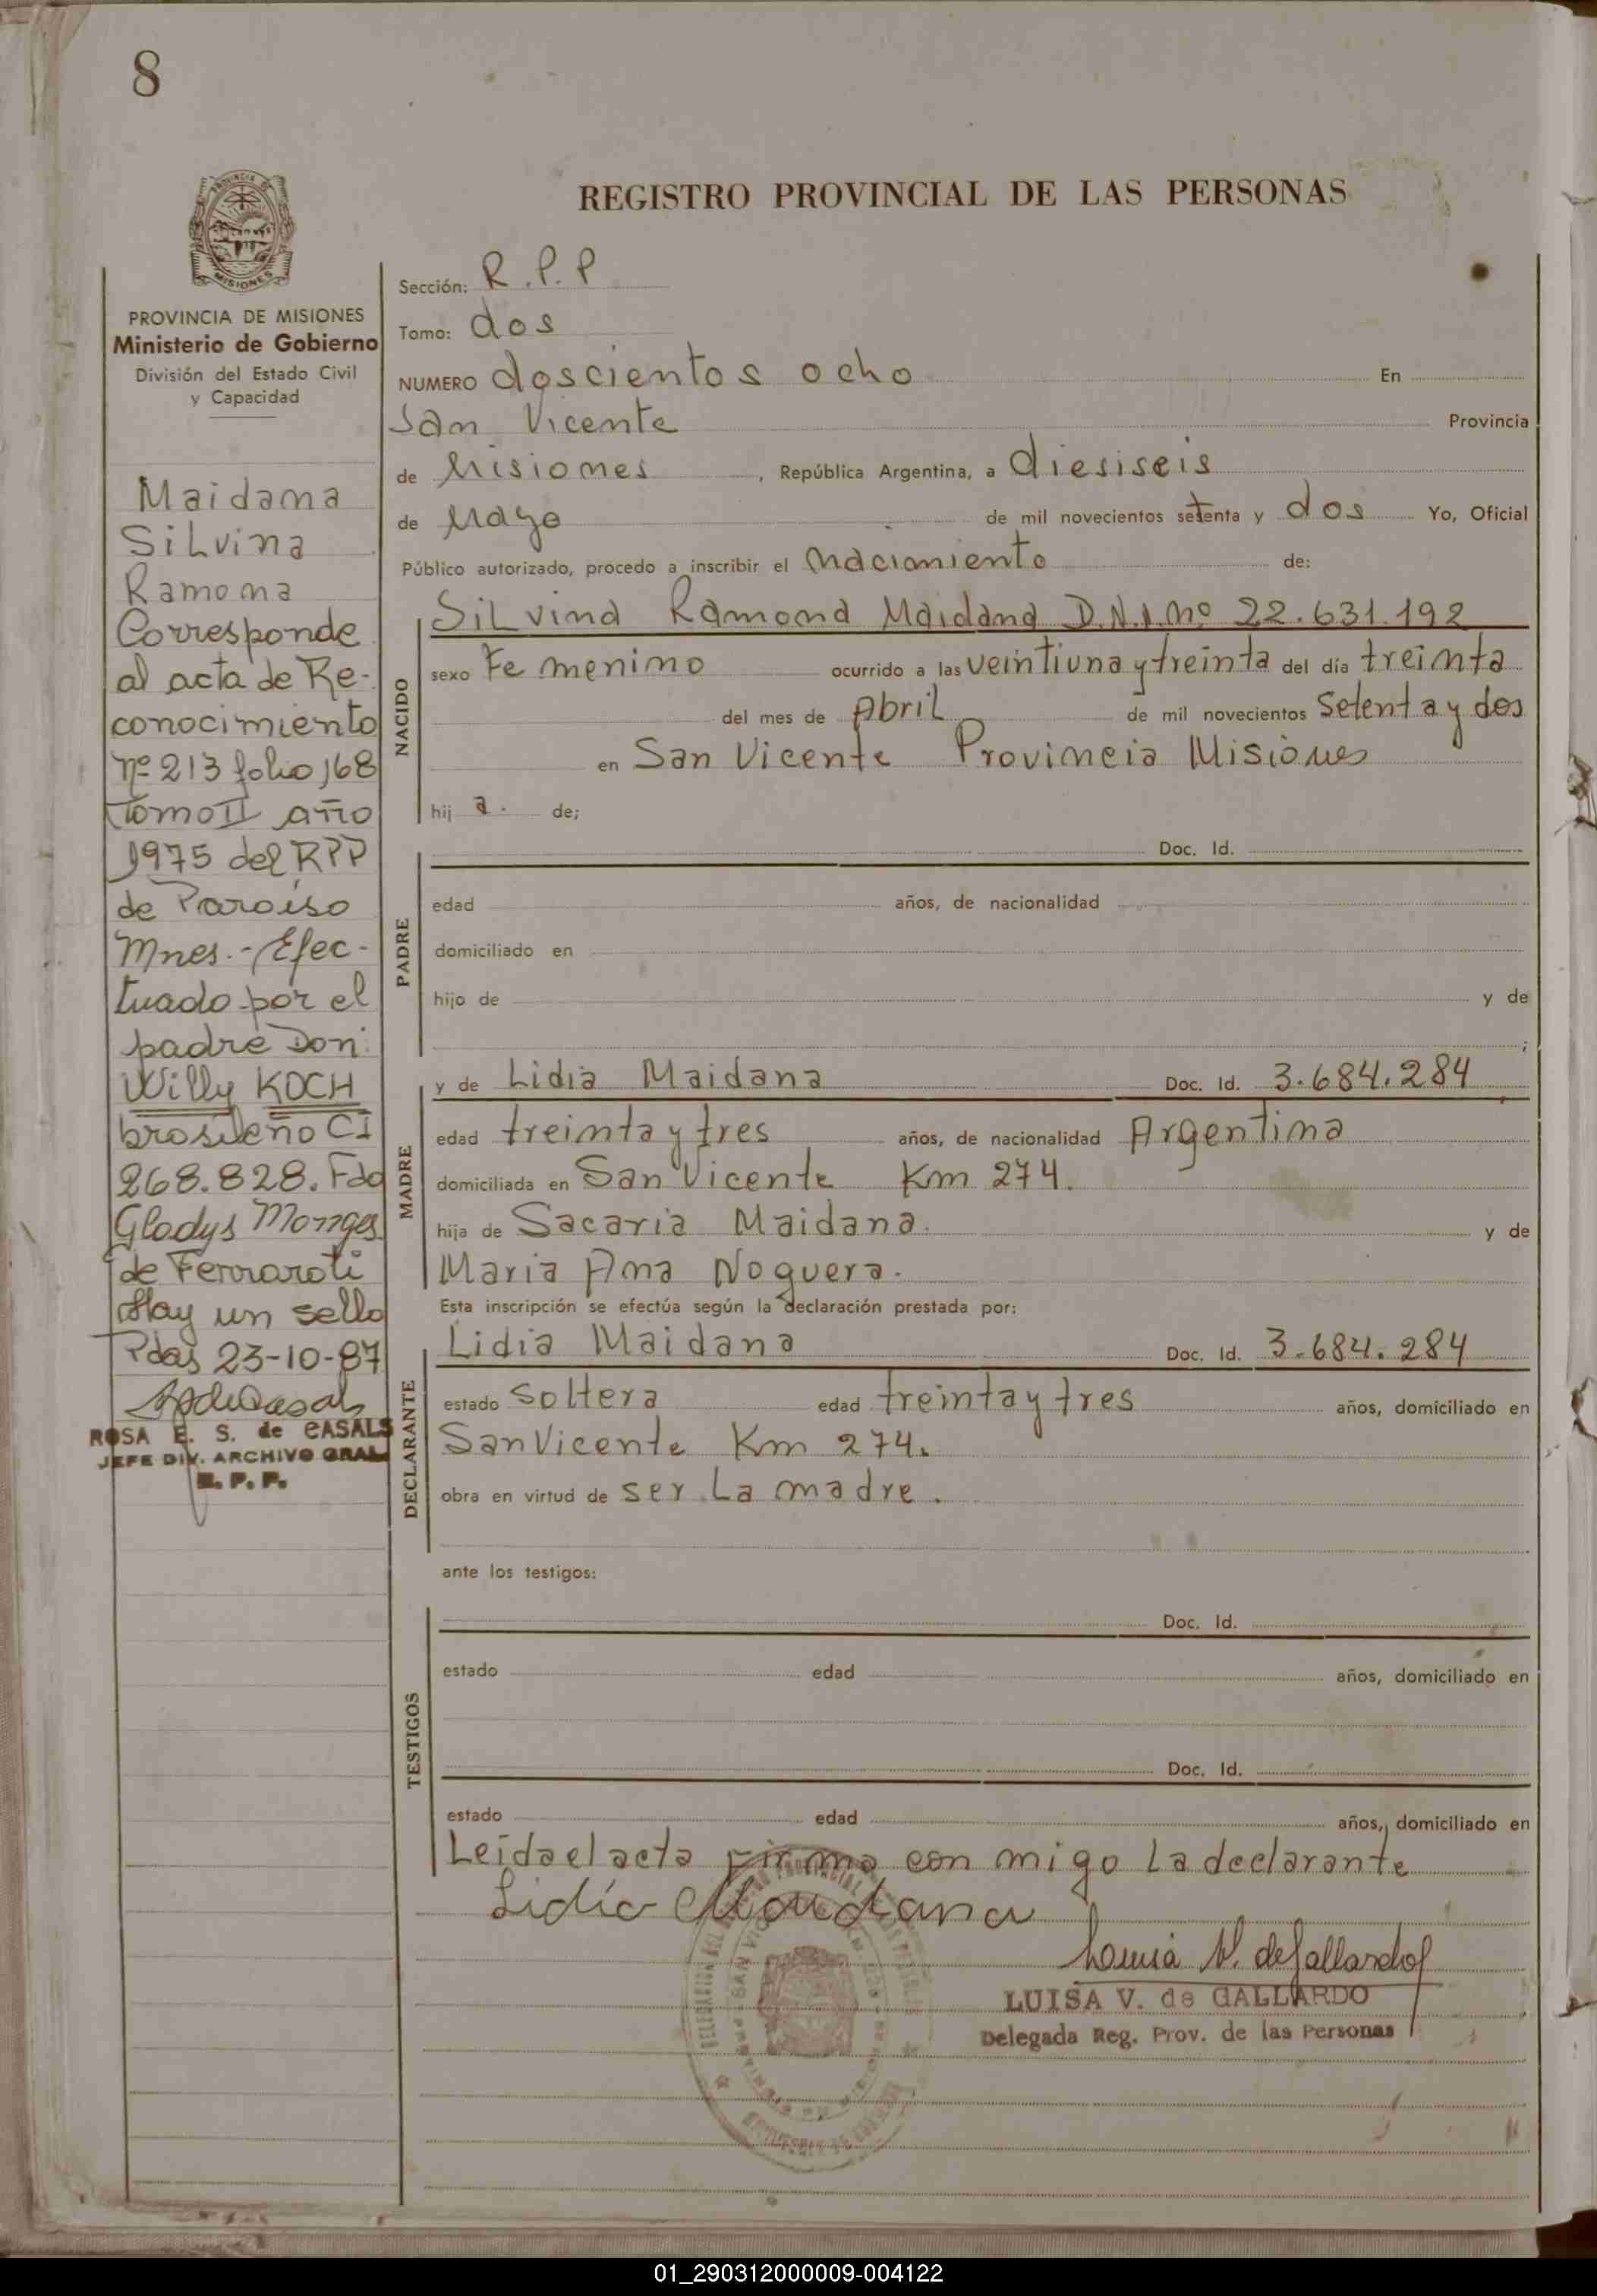 8
REGISTRO PROVINCIAL DE LAS PERSONAS
PROVINCIA DE
MISIONES
PROVINCIA DE MISIONES
Ministerio de Gobierno
División del Estado Civil
y Capacidad
Maidana
Silvina
Ramona
Corresponde
al acta de Re-
conocimiento
nº 213 folio 168
Tomo II año
1975 del RPP
de Paraiso
Mnes.- Efec-
tuado por el
padre Don:
Willy KOCH
brasileño CI
268.828. Fdo
Gladys Monges
de Ferraroti
Hay un sello
Pdas 23-10-87
ROSA E. S. de CASALS
JEFE DIV. ARCHIVO GRAL
R. P. P.
Sección: R.P.P
Tomo: dos
NUMERO doscientos ocho En
San Vicente Provincia
de Misiones, República Argentina, a diesiseis
de Mayo de mil novecientos setenta y dos Yo, Oficial
Público autorizado, procedo a inscribir el nacimiento de:
NACIDO
Silvina Ramona Maidana D.N.I. nº 22.631.192
sexo Femenino ocurrido a las veintiuna y treinta del día treinta
del mes de Abril de mil novecientos Setenta y dos
en San Vicente Provincia Misiones
hij a. de;
PADRE
Doc. Id.
edad años, de nacionalidad
domiciliado en
hijo de y de
;
MADRE
y de Lidia Maidana Doc. Id. 3.684.284
edad treinta y tres años, de nacionalidad Argentina
domiciliada en San Vicente Km 274.
hija de Sacaria Maidana. y de
Maria Ana Noguera.
Esta inscripción se efectúa según la declaración prestada por:
DECLARANTE
Lidia Maidana Doc. Id. 3.684.284
estado Soltera edad treinta y tres años, domiciliado en
San Vicente Km 274.
obra en virtud de ser La madre.
ante los testigos:
TESTIGOS
Doc. Id.
estado edad años, domiciliado en
Doc. Id.
estado edad años, domiciliado en
Leida el acta firma con migo La declarante
Lidia Maidana
Luisa V. de Gallardo
LUISA V. de GALLARDO
Delegada Reg. Prov. de las Personas
01_290312000009-004122